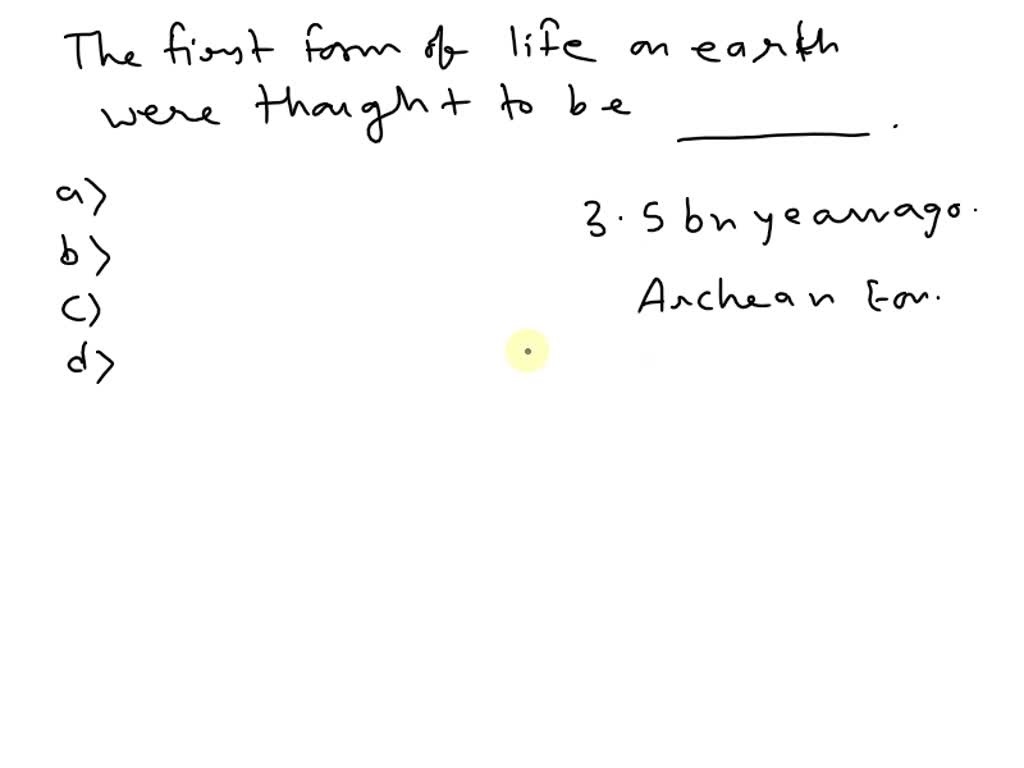 The first form of life on earth
were thought to be ________.
a)
b)
c)
d)
3.5 bn years ago.
Archean Eon.